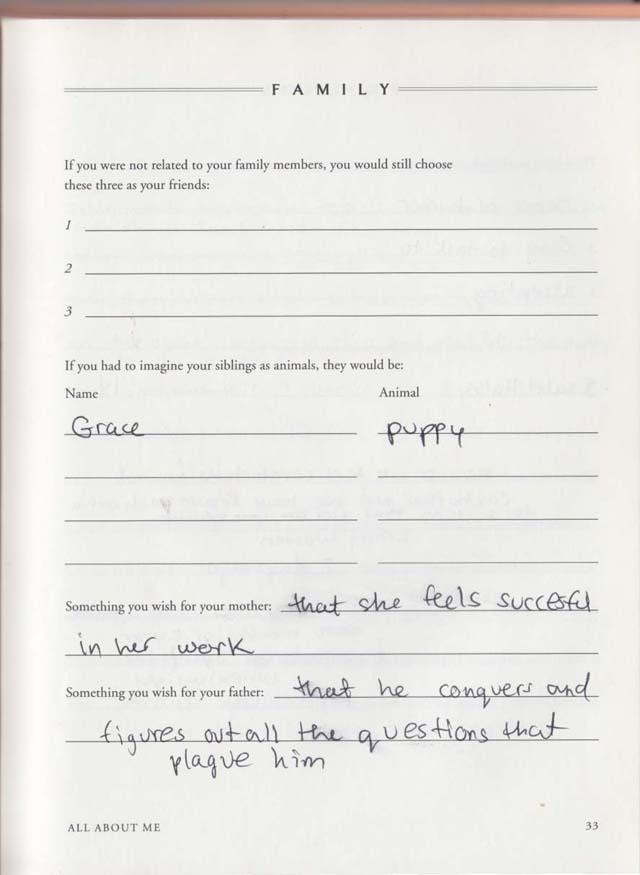 FAMILY
If you were not related to your family members, you would still choose
these three as your friends:
1
2
3
If you had to imagine your siblings as animals, they would be:
Name Animal
Grace puppy
Something you wish for your mother: that she feels succesful
in her work
Something you wish for your father: that he conquers and
figures out all the questions that
plague him
ALL ABOUT ME 33